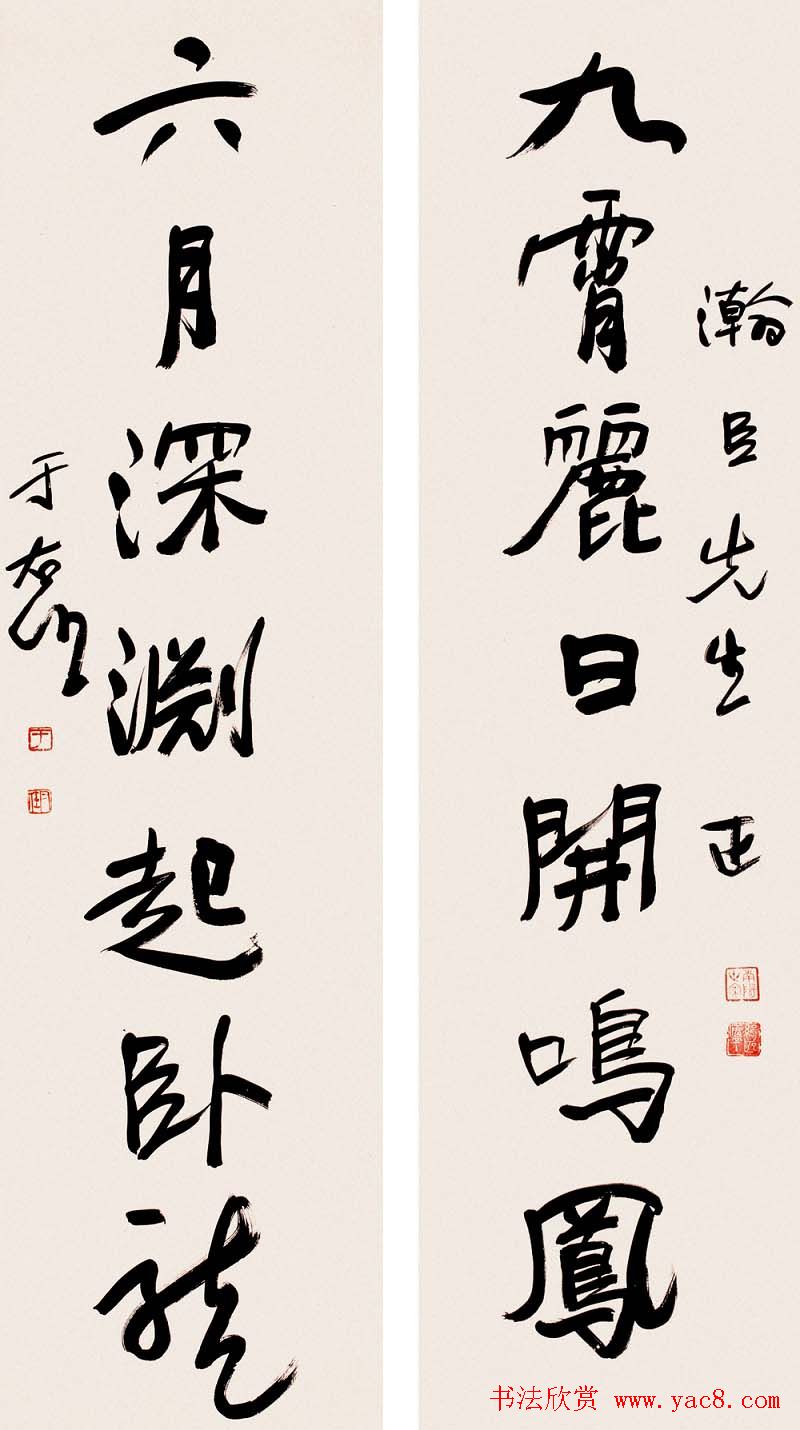 瀚臣先生正
九霄麗日開鳴鳳
六月深淵起卧龍
于右任
书法欣赏 www.yac8.com